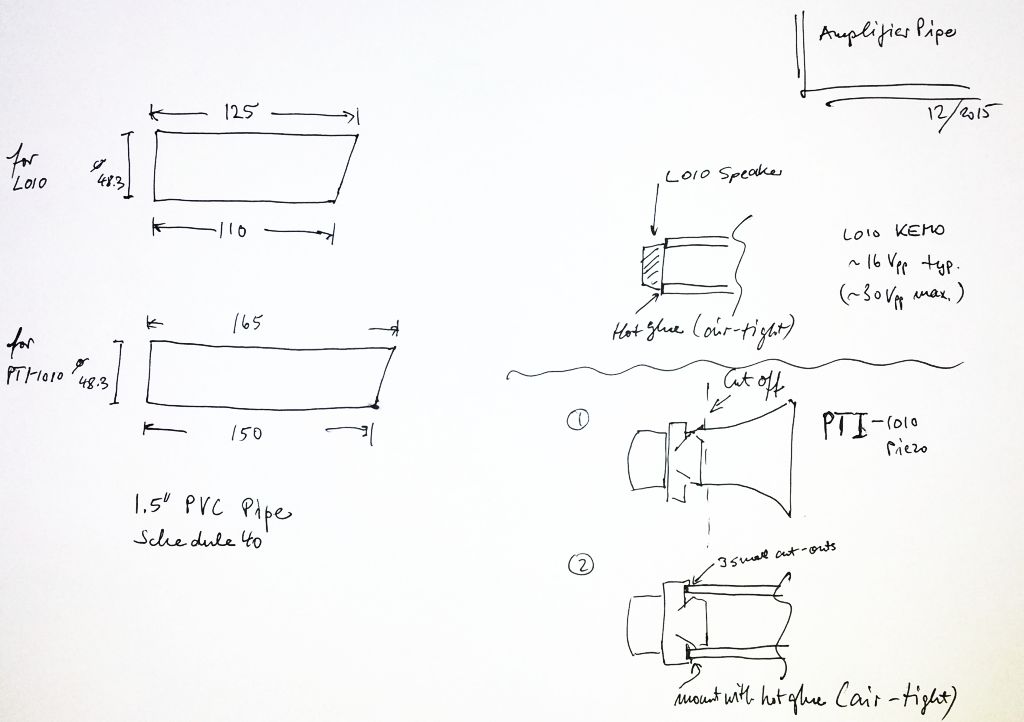 Amplifier Pipe
12/2015
125
for
L010
ø
48.3
110
165
for
PTI-1010
ø
48.3
150
1.5" PVC Pipe
Schedule 40
L010 Speaker
L010 KEMO
~16 Vpp typ.
(~30 Vpp max.)
Hot glue (air-tight)
Cut off
1
PTI-1010
Piezo
2
3 small cut-outs
mount with hot glue (air-tight)